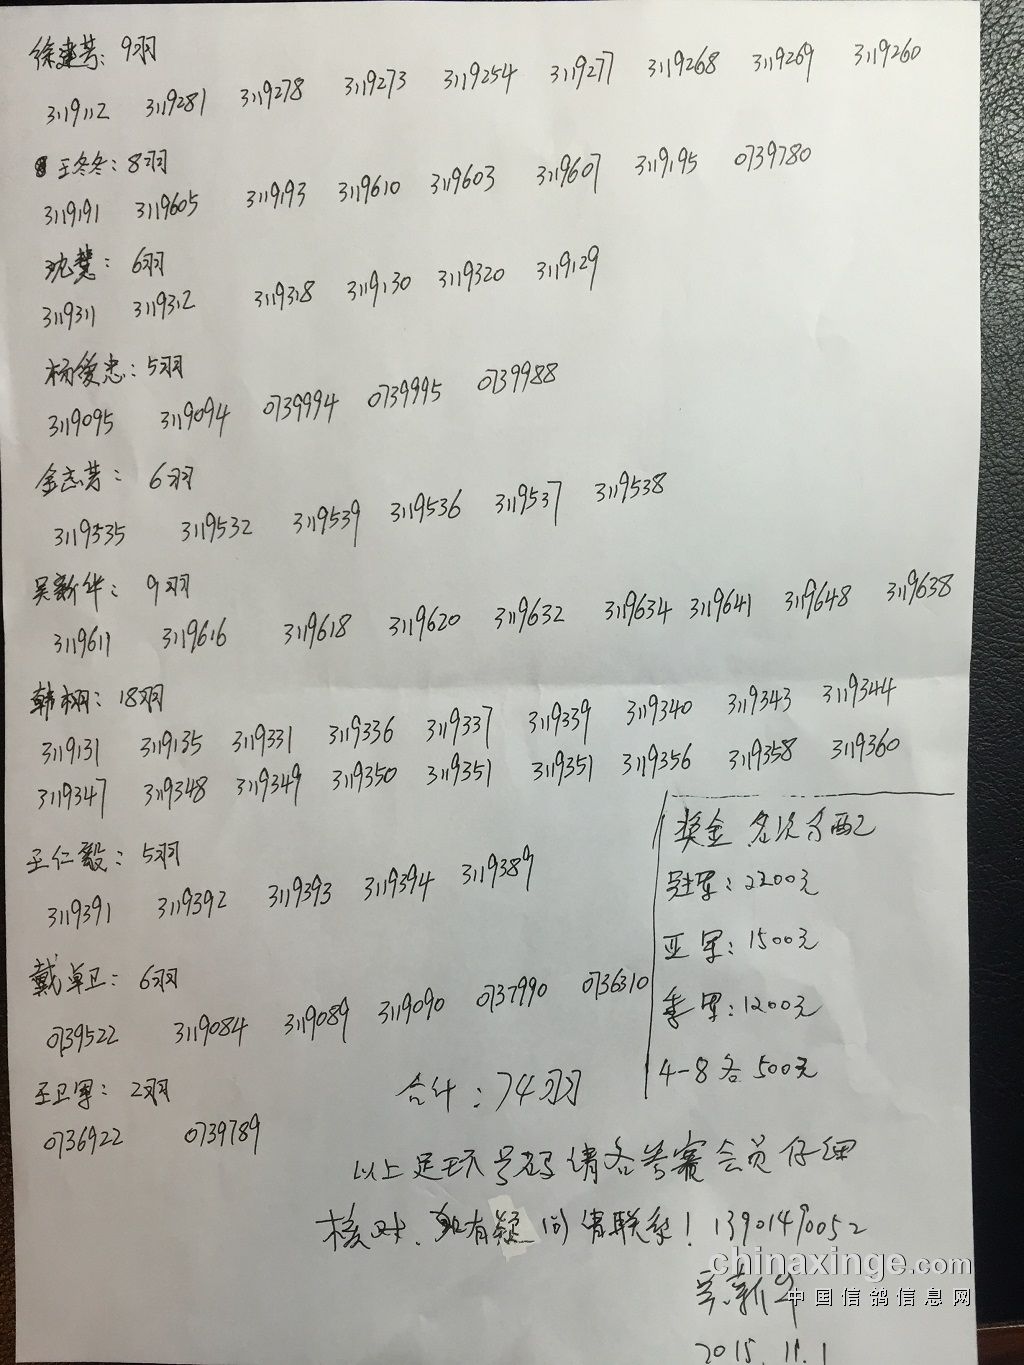 徐建芳：9羽
3119112 3119281 3119278 3119273 3119254 3119277 3119268 3119269 3119260
王冬冬：8羽
3119191 3119605 3119193 3119610 3119603 3119607 3119195 0739780
沈慧：6羽
3119311 3119312 3119318 3119130 3119320 3119129
杨爱忠：5羽
3119095 3119094 0739994 0739995 0739988
金志芳：6羽
3119535 3119532 3119539 3119536 3119537 3119538
吴新华：9羽
3119611 3119616 3119618 3119620 3119632 3119634 3119641 3119648 3119638
韩栩：18羽
3119131 3119135 3119331 3119336 3119337 3119339 3119340 3119343 3119344
3119347 3119348 3119349 3119350 3119351 3119351 3119356 3119358 3119360
王仁毅：5羽
3119391 3119392 3119393 3119394 3119389
戴卓卫：6羽
0739522 3119084 3119089 3119090 0737990 0736310
王卫军：2羽
0736922 0739789
奖金名次分配
冠军：2200元
亚军：1500元
季军：1200元
4-8各500元
合计：74羽
以上足环号码请各参赛会员仔细
核对.如有疑问请联系！13901490052
吴新华
2015.11.1
chinaxinge.com
中国信鸽信息网